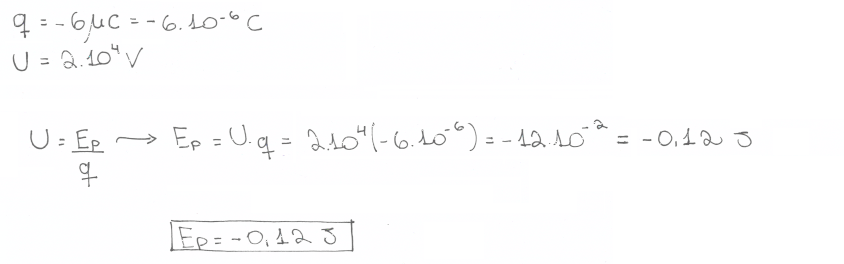 q = -6μC = -6.10⁻⁶ C
U = 2.10⁴ V
U = Ep/q → Ep = U.q = 2.10⁴(-6.10⁻⁶) = -12.10⁻² = -0,12 J
Ep = -0,12 J